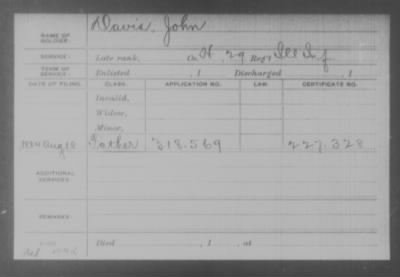 Davis, John
NAME OF SOLDIER:
SERVICE: Late rank, Co. H, 29 Reg't Ill Inf
TERM OF SERVICE: Enlisted , 1 Discharged , 1
DATE OF FILING. CLASS. APPLICATION NO. LAW. CERTIFICATE NO.
Invalid,
Widow,
Minor,
Aug 18 Father 318.569 227.328
ADDITIONAL SERVICES:
REMARKS:
Died , 1 , at